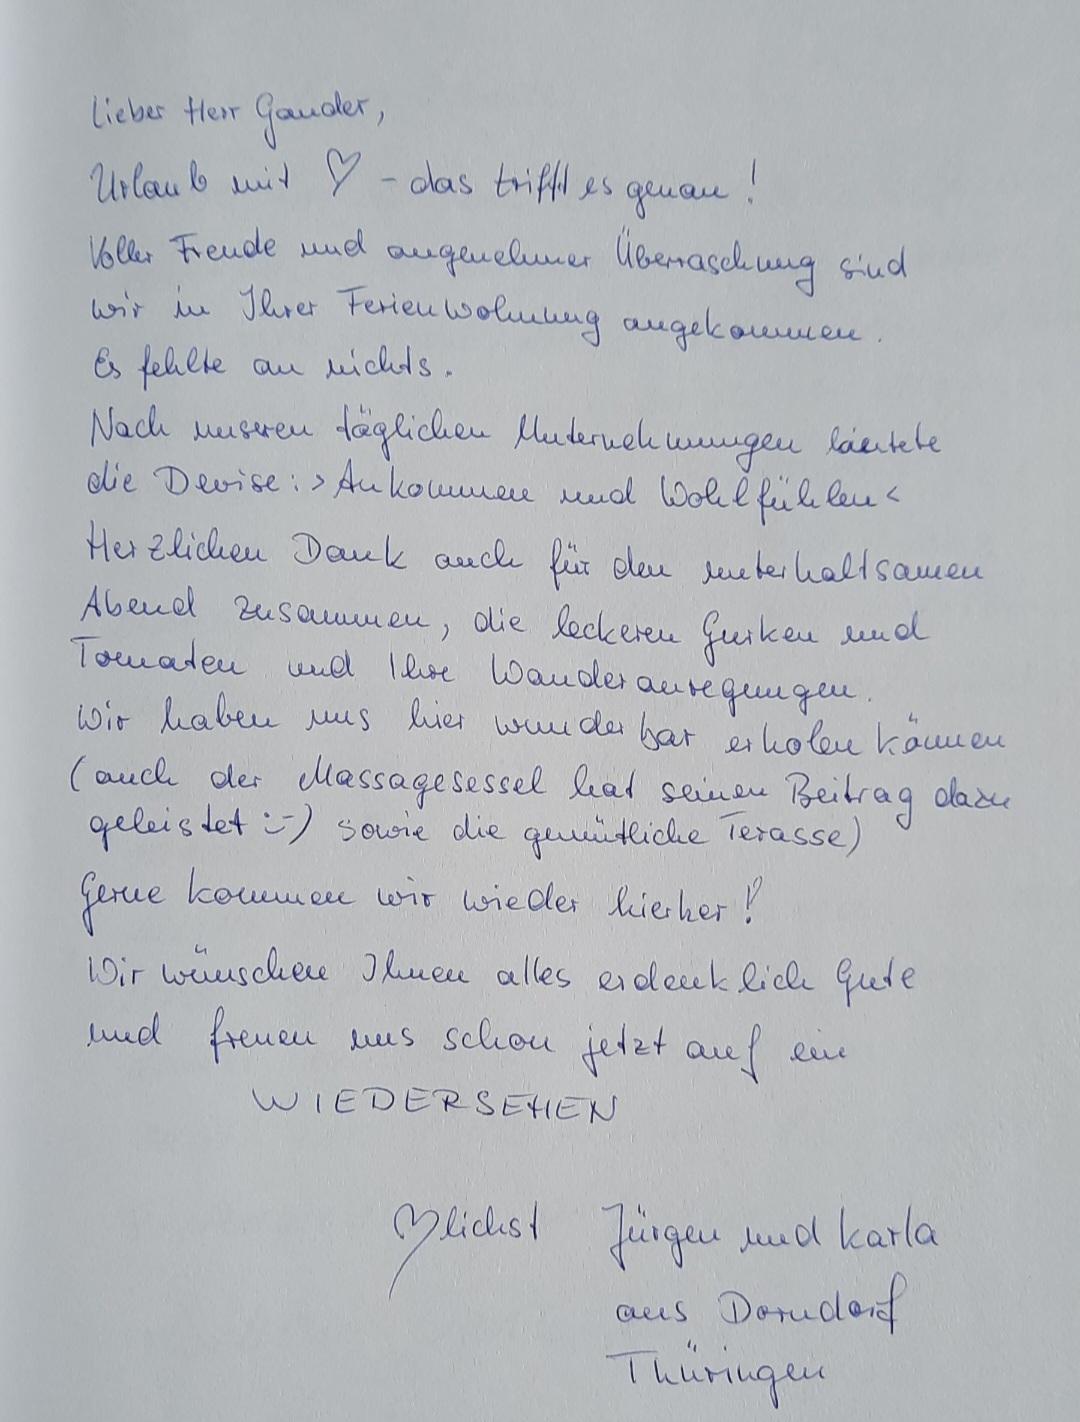 Lieber Herr Gander,
Urlaub mit ♡ - das trifft es genau!
Voller Freude und angenehmer Überraschung sind
wir in Ihrer Ferienwohnung angekommen.
Es fehlte an nichts.
Nach unseren täglichen Unternehmungen lautete
die Devise: >Ankommen und Wohlfühlen<
Herzlichen Dank auch für den unterhaltsamen
Abend zusammen, die leckeren Gurken und
Tomaten und Ihre Wanderanregungen.
Wir haben uns hier wunderbar erholen können
(auch der Massagesessel hat seinen Beitrag dazu
geleistet :-) sowie die gemütliche Terasse)
Gerne kommen wir wieder hierher!
Wir wünschen Ihnen alles erdenklich Gute
und freuen uns schon jetzt auf ein
WIEDERSEHEN
♡lichst Jürgen und Karla
aus Dorndorf
Thüringen